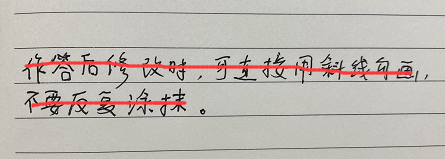 作答后修改时，可直接用斜线勾画，
不要反复涂抹。